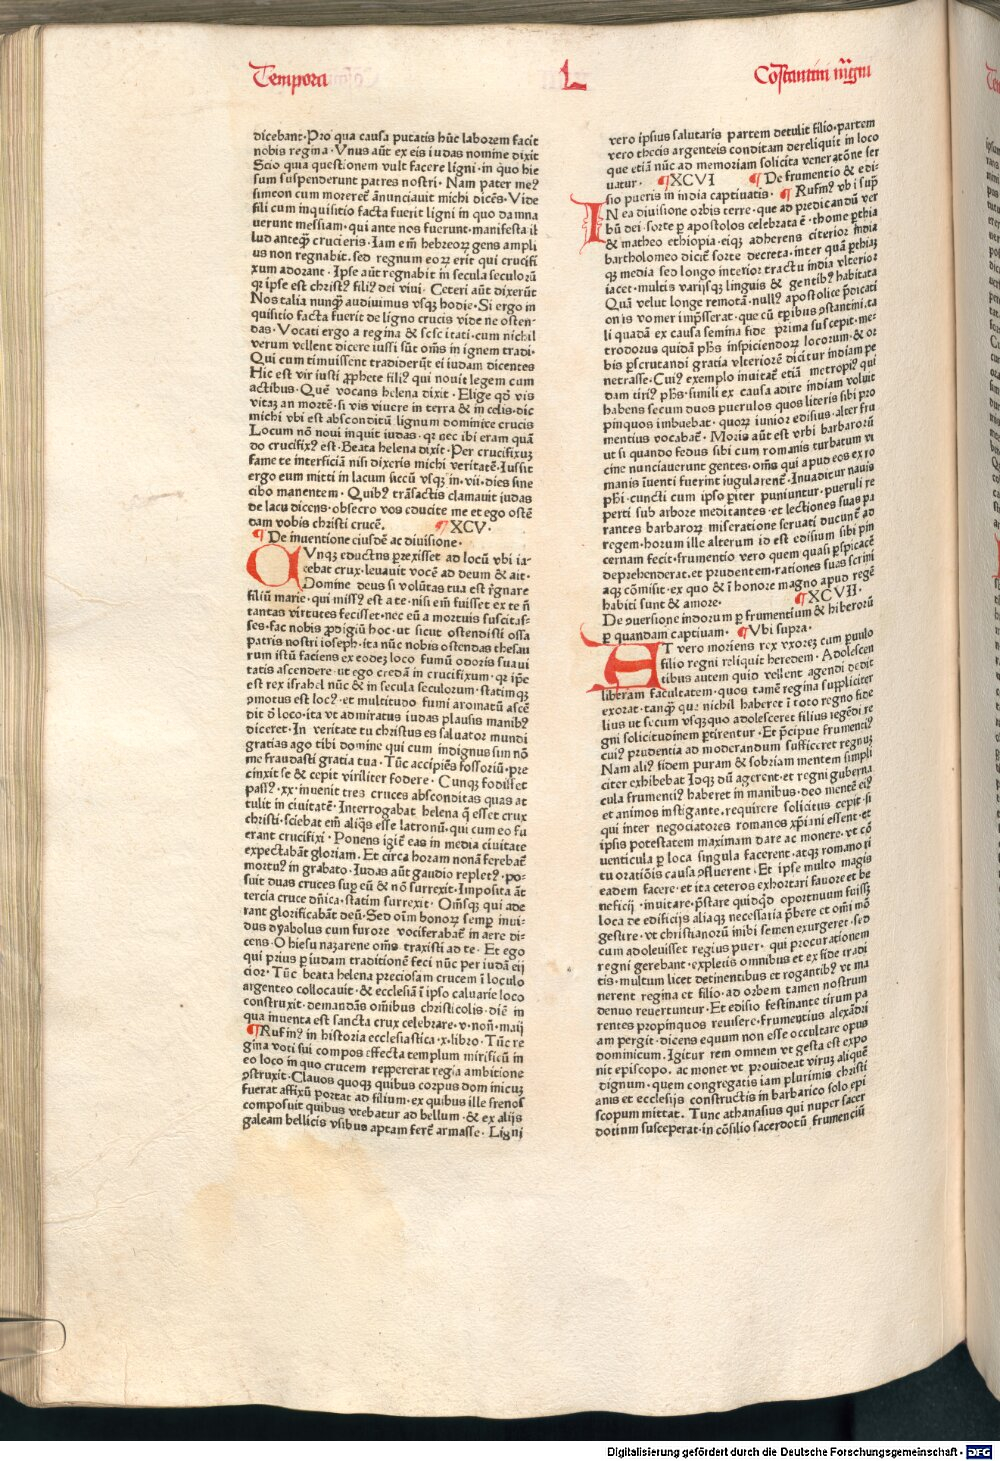 Tempora
L
Costantini mgni
dicebant·Pro qua causa putatis hūc laborem facit
nobis regina·Vnus aūt ex eis iudas nomine dixit
Scio quia questionem vult facere ligni·in quo hie
sum suspenderunt patres nostri·Nam pater meꝰ
simeon cum morereť ānunciauit michi dicēs·Vide
fili cum inquisitio facta fuerit ligni in quo damna
uerunt messiam·qui ante nos fuerunt·manifesta il
lud anteqꝫ crucieris·Iam em̄ hebreoꝝ gens ampli
us non regnabit·sed regnum eoꝝ erit qui crucifi
xum adorant·Ipse aūt regnabit in secula seculoꝝ
qꝛ ipse est christꝰ filiꝰ dei viui·Ceteri aūt dixerūt
Nos talia nunqꝫ audiuimus vsqꝫ hodie·Si ergo in
quisitio facta fuerit de ligno crucis vide ne osten-
das·Vocati ergo a regina & scisc itati·cum nichil
verum vellent dicere iussi sūt om̄s in ignem tradi·
Qui cum timuissent tradiderūt ei iudam dicentes
Hic est vir iusti ꝓphete filiꝰ qui nouit legem cum
actibus·Quē vocans helena dixit·Elige qd̄ vis
vitaꝫ an mortē·si vis viuere in terra & in celis·dic
michi vbi est absconditū lignum dominice crucis
Locum nō noui inquit iudas·qꝛ nec ibi eram quā
do crucifixꝰ est·Beata helena dixit·Per crucifixuꝫ
fame te interficiā nisi dixeris michi veritatē·Iussit
ergo eum mitti in lacum siccū vsqꝫ in·vii·dies sine
cibo manentem·Quibꝰ trāsactis clamauit iudas
de lacu dicens·obsecro vos educite me et ego ostē
dam vobis christi crucē. ¶XCV·
¶De inuentione eiusdē ac diuisione·
CVnqꝫ eductus ꝑrexisset ad locū vbi ia-
cebat crux·leuauit vocē ad deum & ait·
Domine deus si volūtas tua est r̄gnare
filiū marie·qui missꝰ est a te·nisi em̄ fuisset ex te n̄
tantas virtutes fecisset·nec eū a mortuis suscitas-
ses·fac nobis ꝓdigiū hoc·ut sicut ostendisti ossa
patris nostri ioseph·ita nūc nobis ostendas thesau
rum istū faciens ex eodeꝫ loco fumū odoris suaui
tatis ascendere·ut ego credā in crucifixum·qꝛ ip̄e
est rex israhel nūc & in secula seculorum·statimqꝫ
ꝯmotus est locꝰ·et multitudo fumi aromatū ascē
dit d̄ loco·ita vt admiratus iudas plausis manibꝰ
diceret·In veritate tu christus es saluator mundi
gratias ago tibi domine qui cum indignus sim nō
me fraudasti gratia tua·Tūc accipiēs fossoriū·pre
cinxit se & cepit viriliter fodere·Cunqꝫ fodisset
passꝰ·xx·inuenit tres cruces absconditas quas at
tulit in ciuitatē·Interrogabat helena q̄ esset crux
christi·sciebat em̄ aliq̄s esse latronū·qui cum eo fu
erant crucifixi·Ponens igiť eas in media ciuitate
expectabāt gloriam·Et circa horam nonā ferebať
mortuꝰ in grabato·Iudas aūt gaudio repletꝰ·po-
suit duas cruces suꝑ eū & nō surrexit·Imposita āt
tercia cruce dn̄ica·statim surrexit·Om̄sqꝫ qui ade
rant glorificabāt deū·Sed oīm bonoꝝ semꝑ inui-
dus dyabolus cum furore vociferabať in aere di-
cens·O hiesu nazarene om̄s traxisti ad te·Et ego
qui prius ꝑ iudam traditionē feci nūc per iudā eij
cior·Tūc beata helena preciosam crucem ī loculo
argenteo collocauit·& ecclesiā ī ipso caluarie loco
construxit·demandās om̄ibus christicolis·diē in
qua inuenta est sancta crux celebrare·v·non̄·maij
¶Rufinꝰ in historia ecclesiastica·x·libro·Tūc re
gina voti sui compos effecta templum mirificū in
eo loco in quo crucem reppererat regia ambitione
ꝯstruxit·Clauos quoqꝫ quibus corpus dominicuꝫ
fuerat affixū portat ad filium·ex quibus ille frenos
composuit quibus vtebatur ad bellum·& ex alijs
galeam bellicis vsibus aptam ferť armasse·Ligni
vero ipsius salutaris partem detulit filio·partem
vero thecis argenteis conditam dereliquit in loco
que etiā nūc ad memoriam solicita veneratōne ser
uatur· ¶XCVI ¶De frumentio & edi-
sio pueris in india captiuatis· ¶Rufinꝰ vbi suꝑ
IN ea diuisione orbis terre·que ad predicandū ver
bū dei·sorte ꝑ apostolos celebrata ē·thome ꝑthia
& matheo ethiopia·eiqꝫ adherens citerior india
bartholomeo dicit̄ sorte decreta·inter quā ꝑthiāqꝫ
qꝫ media sed longo interior tractu india vlterior
iacet·multis varijsqꝫ linguis & gentibꝰ habitata
Quā velut longe remotā·nullꝰ apostolice p̄dicati
onis vomer imp̄sserat·que cū tꝑibus ꝯstantini·ta
li quadā ex causa semina fide prima suscepit·me-
trodorus quidā ph̄s inspiciendoꝝ locorum·& or
bis ꝑscrutandi gratia vlteriorē dicitur indiam pe
netrasse·Cuiꝰ exemplo inuitatꝰ etiā metropiꝰ qui
dam tiriꝰ ph̄s·simili ex causa adire indiam voluit
habens secum duos puerulos quos literis sibi pro
pinquos imbuebat·quoꝝ iunior edisius·alter fru
mentius vocabať·Moris aūt est vrbi barbarorū
ut si quando fedus sibi cum romanis turbatum vi
cine nunciauerunt gentes·om̄s qui apud eos ex ro
manis īuenti fuerint iugularenť·Inuaditur nauis
ph̄i·cuncti cum ipso ꝑiter puniuntur·pueruli re
perti sub arbore meditantes·et lectiones suas pa
rantes barbaroꝝ miseratione seruati ducunť ad
regem·horum ille alterum id est edisium sibi pin
cernam fecit·frumentio vero quem quasi ꝑspicacē
deprehenderat·et prudentem·rationes suas scrini
aqꝫ cōmisit·ex quo & ī honore magno apud regē
habiti sunt & amore· ¶XCVII·
De ꝯuersione indorum ꝑ frumentium & hiberorū
ꝑ quandam captiuam· ¶Vbi supra·
AT vero moriens rex vxoreꝫ cum paruulo
filio regni reliquit heredem·Adolescen
tibus autem quid vellent agendi dedit
liberam facultatem·quos tamē regina suppliciter
exorat·tanqꝫ que nichil haberet ī toto regno fide
lius ut secum vsqꝫquo adolesceret filius regēdi re
gni solicitudinem ꝑtirentur·Et p̄cipue frumentiꝰ
cuiꝰ prudentia ad moderandum sufficeret regnuꝫ
Nam aliꝰ fidem puram & sobriam mentem simpli
citer exhibebat Idqꝫ dū agerent·et regni guberna
cula frumentiꝰ haberet in manibus·deo mentē eiꝰ
et animos instigante·requirere solicitus cepit·si
qui inter negociatores romanos xp̄iani essent·et
ipsis potestatem maximam dare ac monere·vt cō
uenticula ꝑ loca singula facerent·atqꝫ romano ri
tu oratiōis causa ꝯfluerent·Et ipse multo magis
eadem facere·et ita ceteros exhortari fauore et be
neficij·inuitare·p̄stare quidqd̄ oportunum fuissꝫ
loca de edificijs aliaqꝫ necessaria p̄bere et om̄i mō
gestire·vt christianorū inibi semen exurgeret·sed
cum adoleuisset regius puer·qui procurationem
regni gerebant·expletis omnibus et ex fide tradi
tis·multum licet detinentibus et rogantibꝰ vt ma
nerent regina et filio·ad orbem tamen nostrum
denuo reuertuntur·Et edisio festinante tirum pa
rentes propinquos reuisere·frumentius alexādri
am pergit·dicens equum non esse occultare opus
dominicum·Igitur rem omnem vt gesta est expo
nit episcopo·ac monet vt prouideat viruꝫ aliquē
dignum·quem congregatis iam plurimis christi
anis et ecclesijs constructis in barbarico solo epi
scopum mittat·Tunc athanasius qui nuper sacer
dotium susceperat·in cōsilio sacerdotū frumenciū
Digitalisierung gefördert durch die Deutsche Forschungsgemeinschaft - DFG